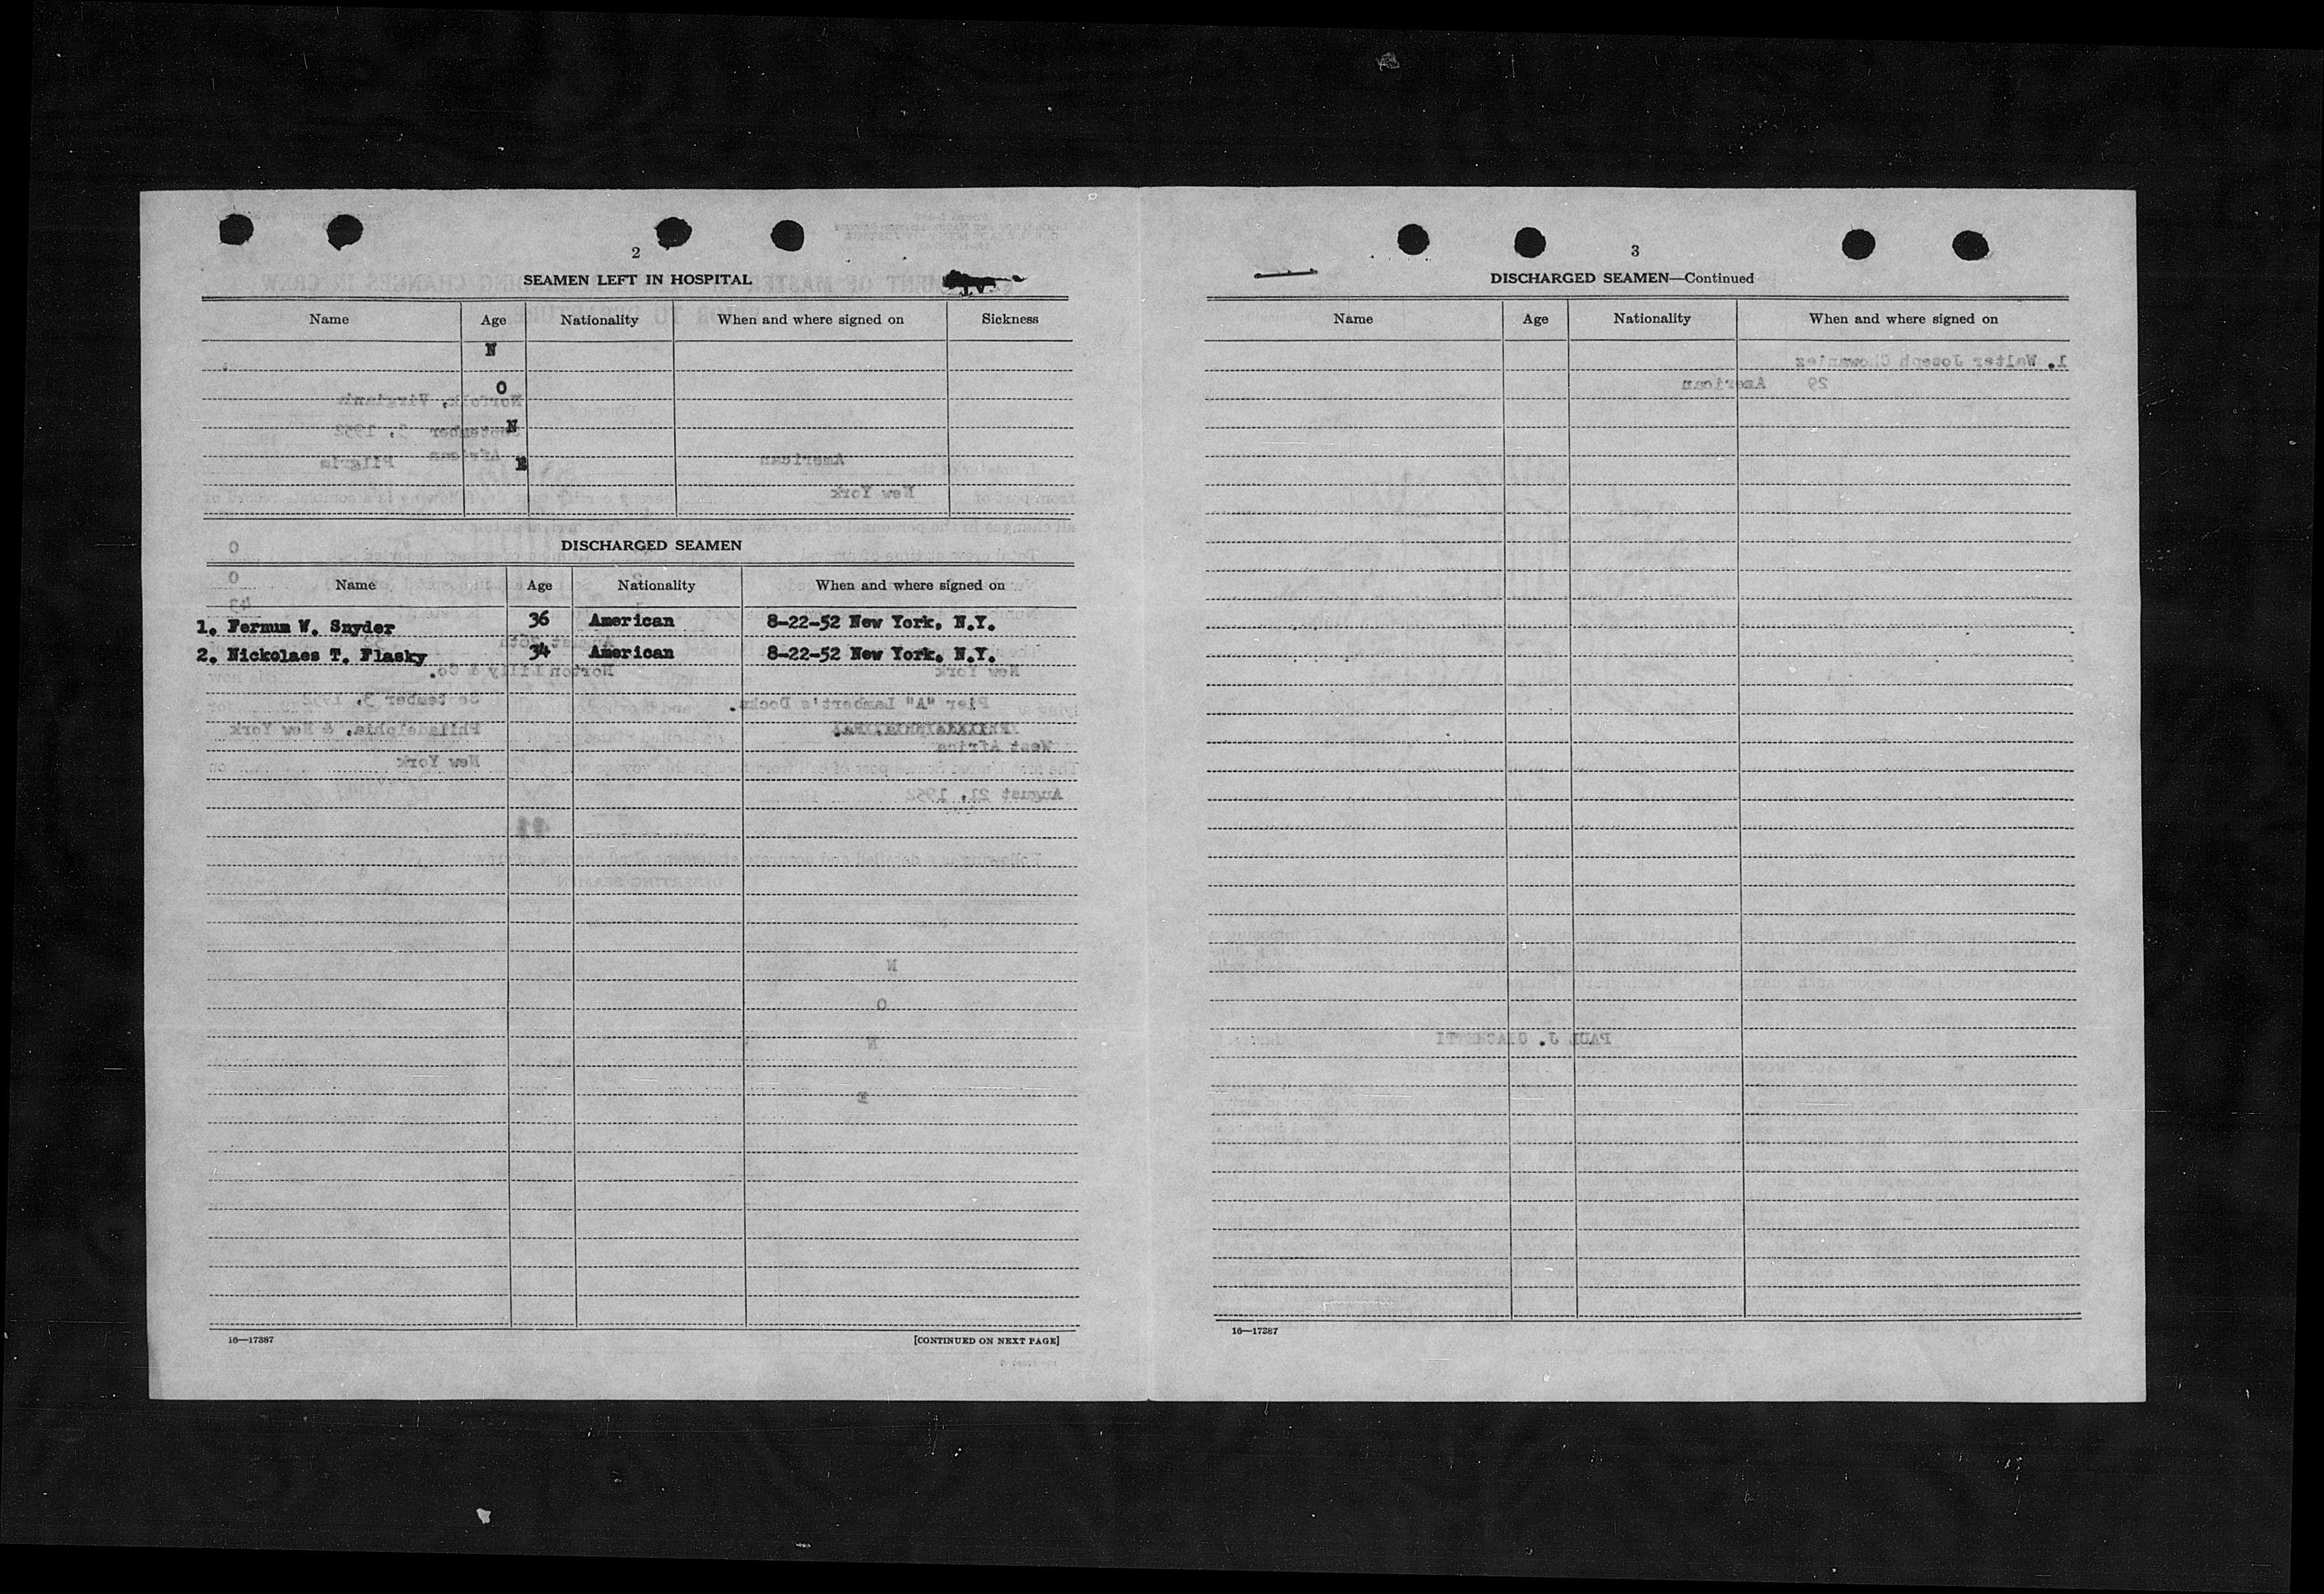 2
SEAMEN LEFT IN HOSPITAL
Name Age Nationality When and where signed on Sickness
N
O
N
E
DISCHARGED SEAMEN
Name Age Nationality When and where signed on
1. Fernum W. Snyder 36 American 8-22-52 New York, N.Y.
2. Nickolaes T. Flasky 34 American 8-22-52 New York, N.Y.
16—17387 [CONTINUED ON NEXT PAGE]
3
DISCHARGED SEAMEN—Continued
Name Age Nationality When and where signed on
16—17387